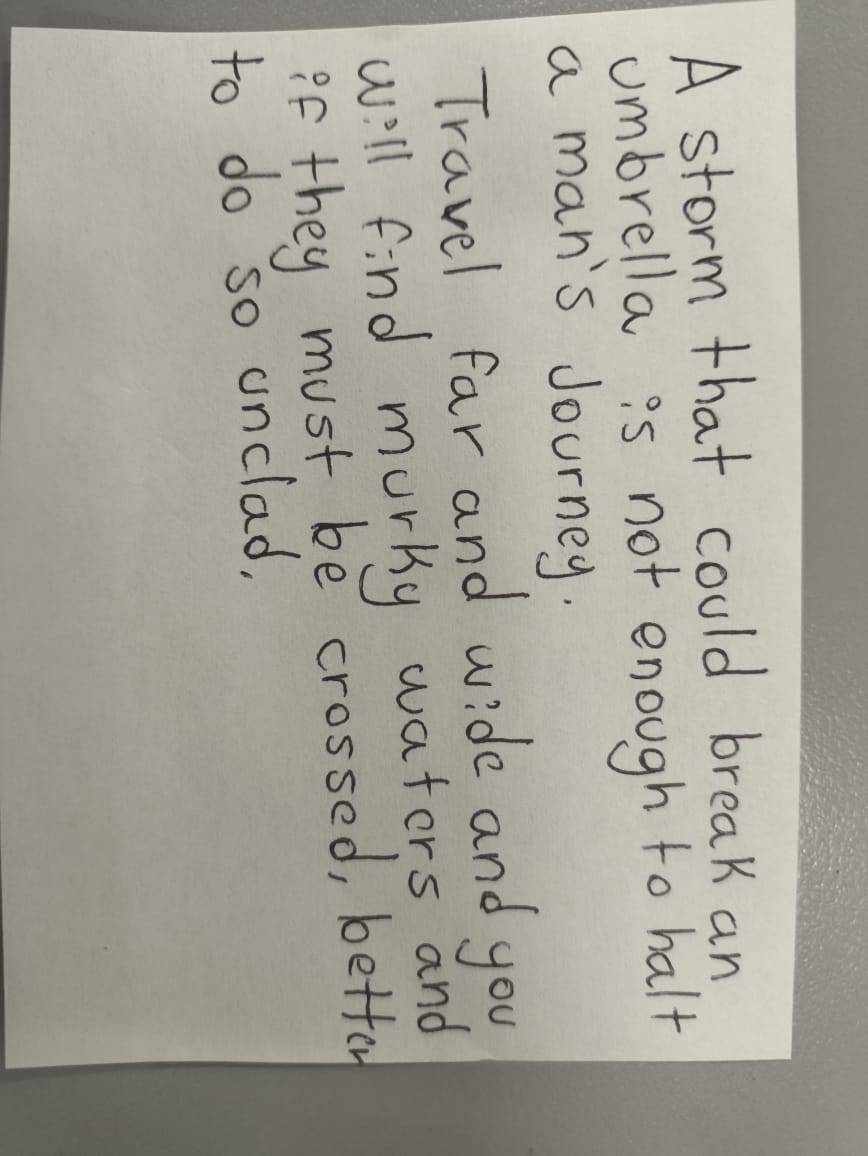 A storm that could break an
umbrella is not enough to halt
a man's Journey.
Travel far and wide and you
will find murky waters and
if they must be crossed, better
to do so unclad.